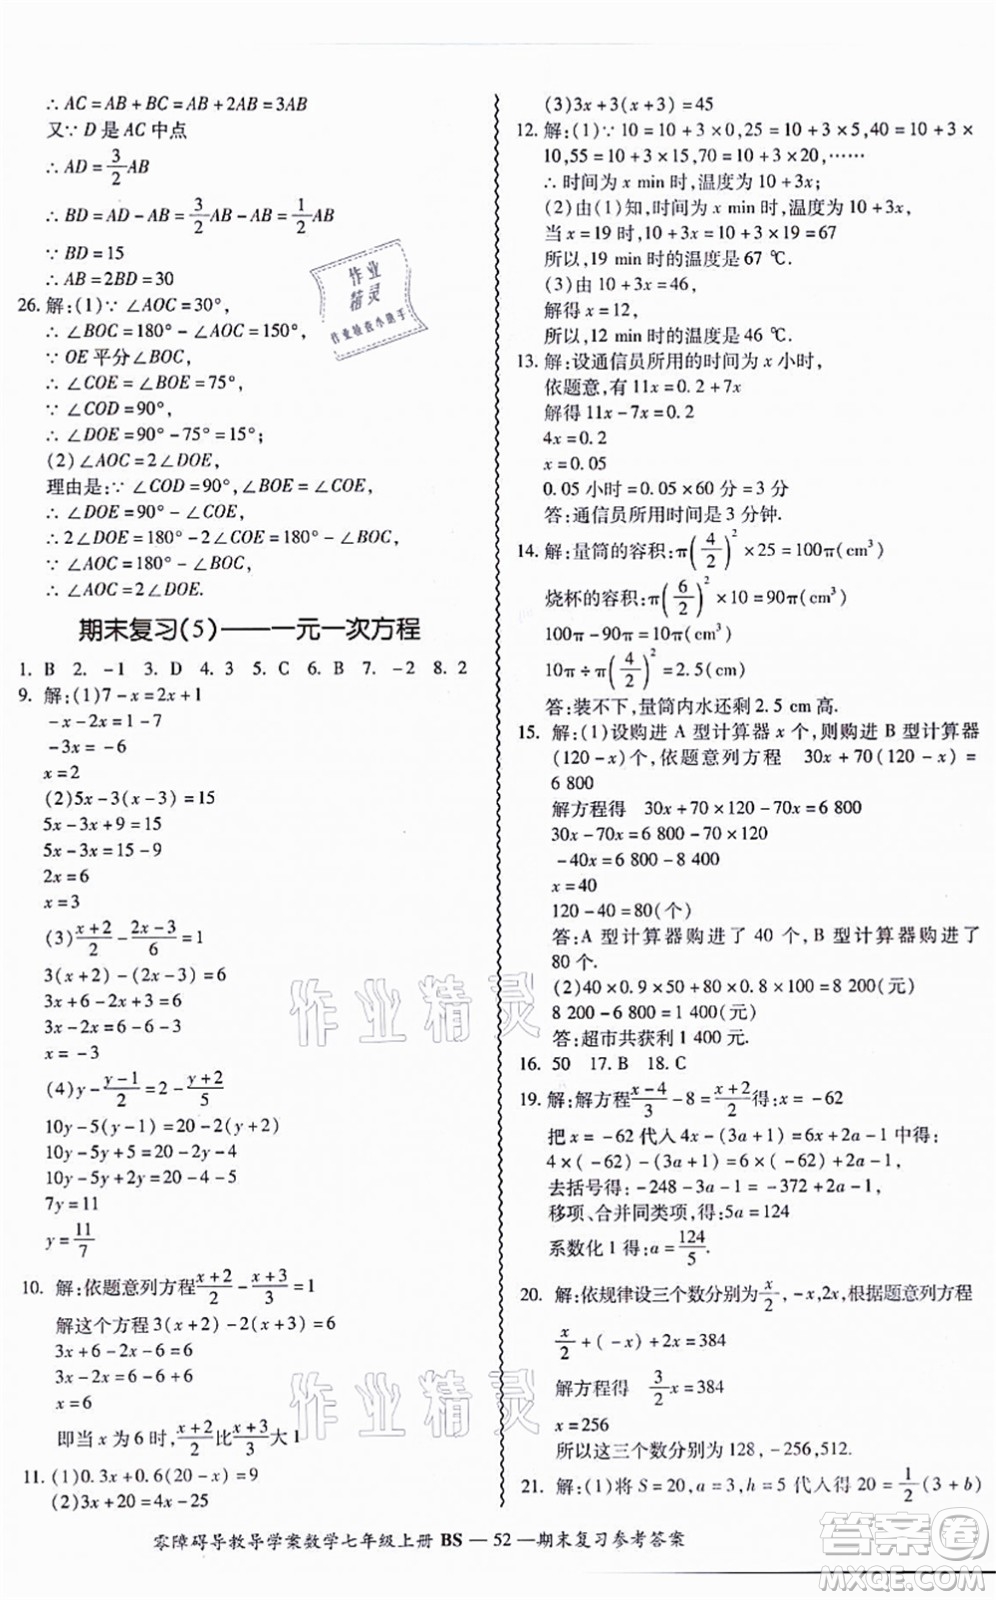 ∴ AC=AB+BC=AB+2AB=3AB
又∵ D 是 AC 中点
∴ AD=3/2AB
∴ BD=AD-AB=3/2AB-AB=1/2AB
∵ BD=15
∴ AB=2BD=30
26. 解:(1)∵ ∠AOC=30°,
∴ ∠BOC=180°-∠AOC=150°,
∵ OE 平分∠BOC,
∴ ∠COE=∠BOE=75°,
∵ ∠COD=90°,
∴ ∠DOE=90°-75°=15°;
(2)∠AOC=2∠DOE,
理由是:∵ ∠COD=90°,∠BOE=∠COE,
∴ ∠DOE=90°-∠COE,
∴ 2∠DOE=180°-2∠COE=180°-∠BOC,
∵ ∠AOC=180°-∠BOC,
∴ ∠AOC=2∠DOE.
期末复习(5)——一元一次方程
1. B 2. -1 3. D 4. 3 5. C 6. B 7. -2 8. 2
9. 解:(1)7-x=2x+1
-x-2x=1-7
-3x=-6
x=2
(2)5x-3(x-3)=15
5x-3x+9=15
5x-3x=15-9
2x=6
x=3
(3)(x+2)/2-(2x-3)/6=1
3(x+2)-(2x-3)=6
3x+6-2x+3=6
3x-2x=6-3-6
x=-3
(4)y-(y-1)/2=2-(y+2)/5
10y-5(y-1)=20-2(y+2)
10y-5y+5=20-2y-4
10y-5y+2y=20-4-5
7y=11
y=11/7
10. 解:依题意列方程(x+2)/2-(x+3)/3=1
解这个方程 3(x+2)-2(x+3)=6
3x+6-2x-6=6
3x-2x=6+6-6
x=6
即当 x 为 6 时,(x+2)/2比(x+3)/3大 1
11. (1)0.3x+0.6(20-x)=9
(2)3x+20=4x-25
(3)3x+3(x+3)=45
12. 解:(1)∵ 10=10+3×0,25=10+3×5,40=10+3×
10,55=10+3×15,70=10+3×20,……
∴ 时间为 x min 时,温度为 10+3x;
(2)由(1)知,时间为 x min 时,温度为 10+3x,
当 x=19 时,10+3x=10+3×19=67
所以,19 min 时的温度是 67 ℃.
(3)由题意得 10+3x=46,
解得 x=12,
所以,12 min 时的温度是 46 ℃.
13. 解:设通信员所用的时间为 x 小时,
依题意,有 11x=0.2+7x
解得 11x-7x=0.2
4x=0.2
x=0.05
0.05 小时=0.05×60 分=3 分
答:通信员所用时间是 3 分钟.
14. 解:量筒的容积:π(4/2)²×25=100π(cm³)
烧杯的容积:π(6/2)²×10=90π(cm³)
100π-90π=10π(cm³)
10π÷π(4/2)²=2.5(cm)
答:装不下,量筒内水还剩 2.5 cm 高.
15. 解:(1)设购进 A 型计算器 x 个,则购进 B 型计算器
(120-x)个,依题意列方程 30x+70(120-x)=
6 800
解方程得 30x+70×120-70x=6 800
30x-70x=6 800-70×120
-40x=6 800-8 400
x=40
120-40=80(个)
答:A 型计算器购进了 40 个,B 型计算器购进了
80 个.
(2)40×0.9×50+80×0.8×100=8 200(元)
8 200-6 800=1 400(元)
答:超市共获利 1 400 元.
16. 50 17. B 18. C
19. 解:解方程(x-4)/3-8=-(x+2)/2得:x=-62
把 x=-62 代入 4x-(3a+1)=6x+2a-1 中得:
4×(-62)-(3a+1)=6×(-62)+2a-1,
去括号得:-248-3a-1=-372+2a-1,
移项、合并同类项,得:5a=124
系数化 1 得:a=124/5.
20. 解:依规律设三个数分别为x/2,-x,2x,根据题意列方程
x/2+(-x)+2x=384
解方程得 3/2x=384
x=256
所以这三个数分别为 128,-256,512.
21. 解:(1)将 S=20,a=3,h=5 代入得 20=1/2(3+b)
零障碍导教导学案数学七年级上册 BS — 52 —期末复习参考答案
作业精灵
作业检查小助手
作业精灵
作业精灵
答案圈
MXQE.COM